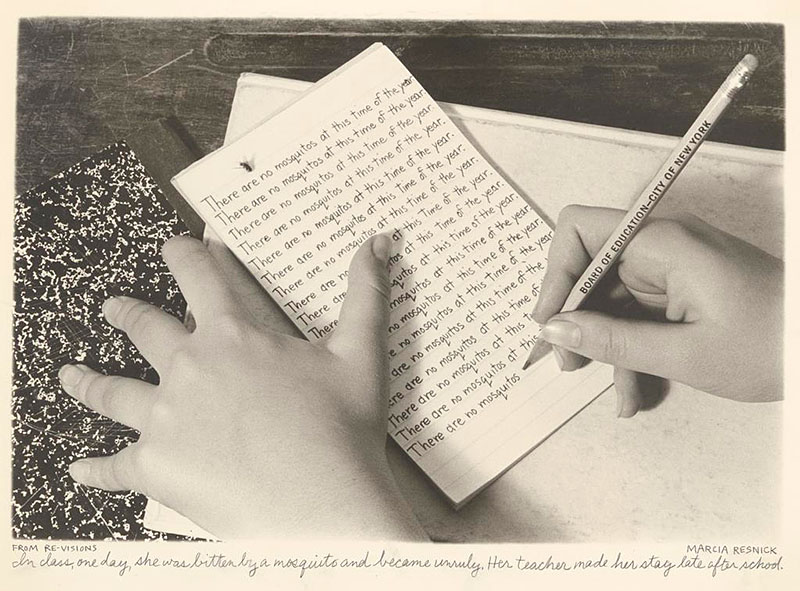 There are no mosquitos at this time of the year
There are no mosquitos at this time of the year.
There are no mosquitos at this time of the year.
There are no mosquitos at this time of the year.
There are no mosquitos at this time of the year.
There are no mosquitos at this time of the year.
There are no at this time of the year.
There are no at this time of the year.
There are at this time of the year.
There mosquitos at this time of the year.
no mosquitos at this time of the year.
no mosquitos at this time of the
are no mosquitos at this time of
are no mosquitos at this time
are no mosquitos at this
There are no mosquitos at this
There are no mosquitos at this
There are no mosquitos
BOARD OF EDUCATION—CITY OF NEW YORK
FROM RE-VISIONS MARCIA RESNICK
In class, one day, she was bitten by a mosquito and became unruly. Her teacher made her stay late after school.